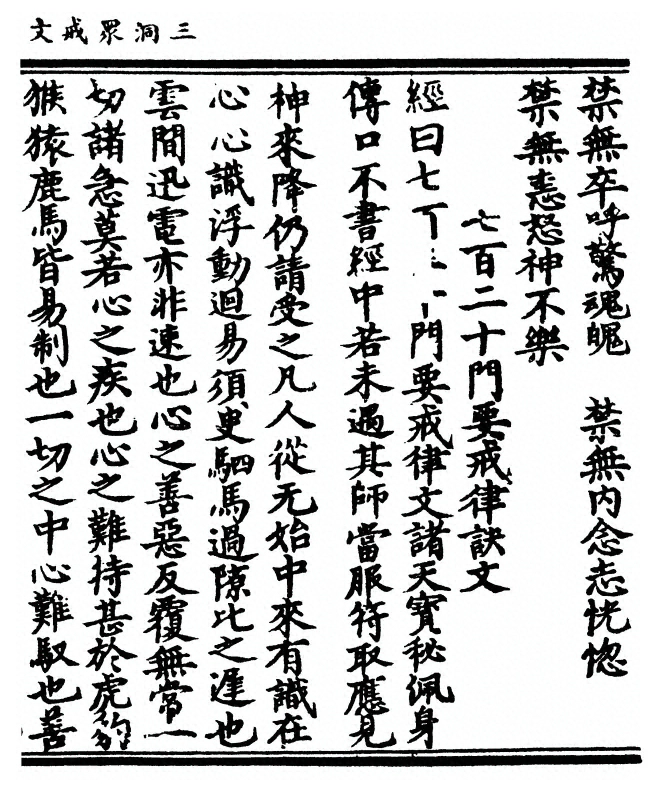 三洞眾戒文
禁無卒呼驚魂魄　禁無內念志恍惚
禁無恚怒神不樂
七百二十門要戒律訣文
經曰七門要戒律文諸天寶秘佩身
傳口不書經中若未過其師當服符取應見
神來降仍請受之凡人從无始中來有識在
心心識浮動迴易須臾駟馬過隙比之遲也
雲間迅電亦非速也心之善惡反覆無常一
切諸急莫若心之疾也心之難持甚於虎豹
猴猿鹿馬皆易制也一切之中心難馭也善